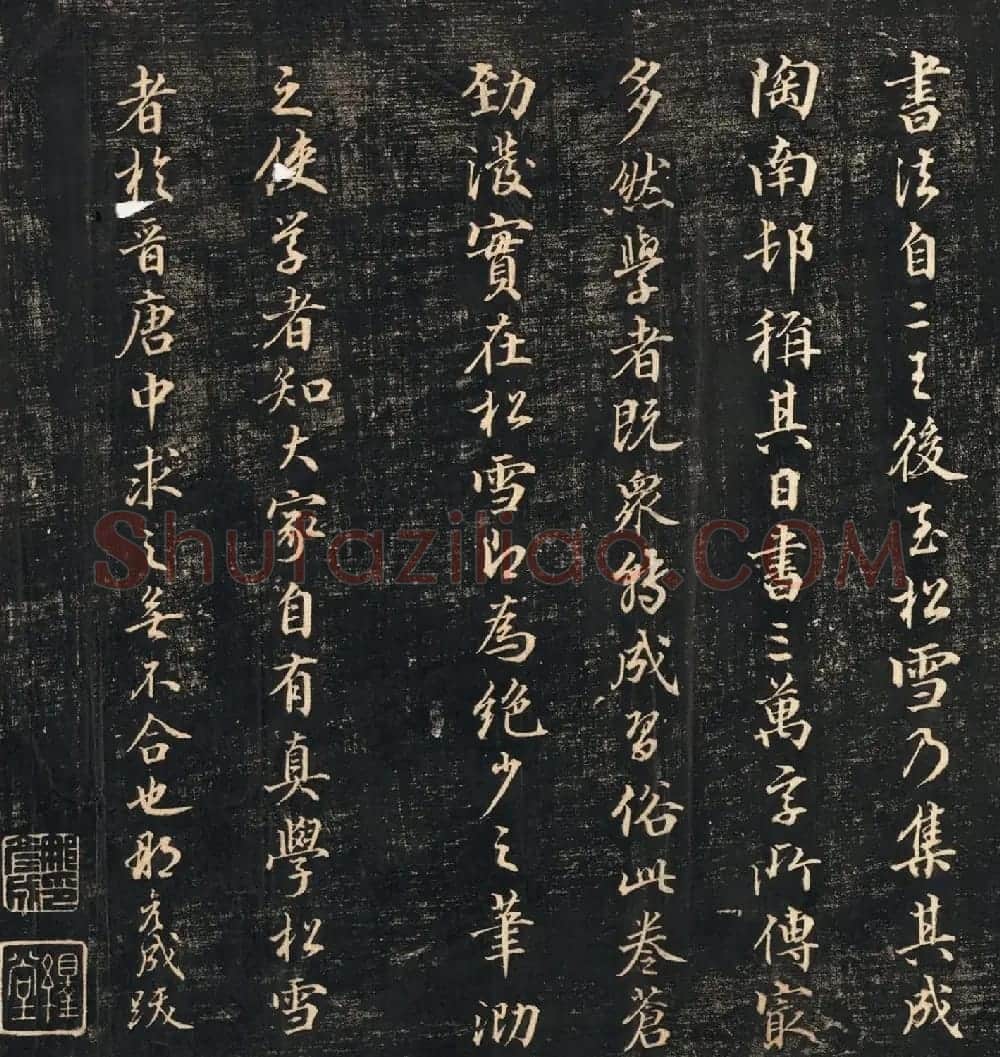 書法自二王後至松雪乃集其成
陶南邨稱其日書三萬字所傳寂
多然學者既衆轉成習俗此卷蒼
勁濃實在松雪即為絶少之筆泐
之使学者知大家自有真學松雪
者於晉唐中求之無不合也那彦成跋
Shufaziliao.COM